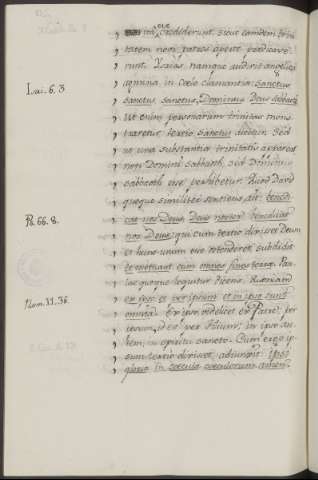 ere
crediderunt, sicut eamdem trini
tatem novi patres aperte predicave
runt. Ysaias namque audivit angelica
Isai. 6. 3
agmina in coelo clamantia: sanctus
sanctus, sanctus, Dominus Deus sabbaoth
Ut enim personarum trinitas mons
traretur, tertio sanctus dicitur. Sed
ut una substantia trinitatis appareat
non Domini sabbaoth, sed Dominus
sabbaoth esse perhibetur. Hunc David
Ps. 66. 8.
quoque similiter sentiens ait: benedi
cat nos Deus, Deus noster, benedicat
nos Deus: qui cum tertio dixisset Deum
ut hunc unum esse ostenderet subdidit
et metuant eum omnes fines terrae. Pau
lus quoque loquitur dicens. Quoniam
Rom. 11. 36.
ex ipso et per ipsum et in ipso sunt
omnia. Ex ipso videlicet ex Patre; per
ipsum, id est per Filium; in ipso au
tem, in spiritu sancto. Cum ergo ip
sum tertio dixisset, adiunxit: ipsi
gloria in saecula saeculorum amen